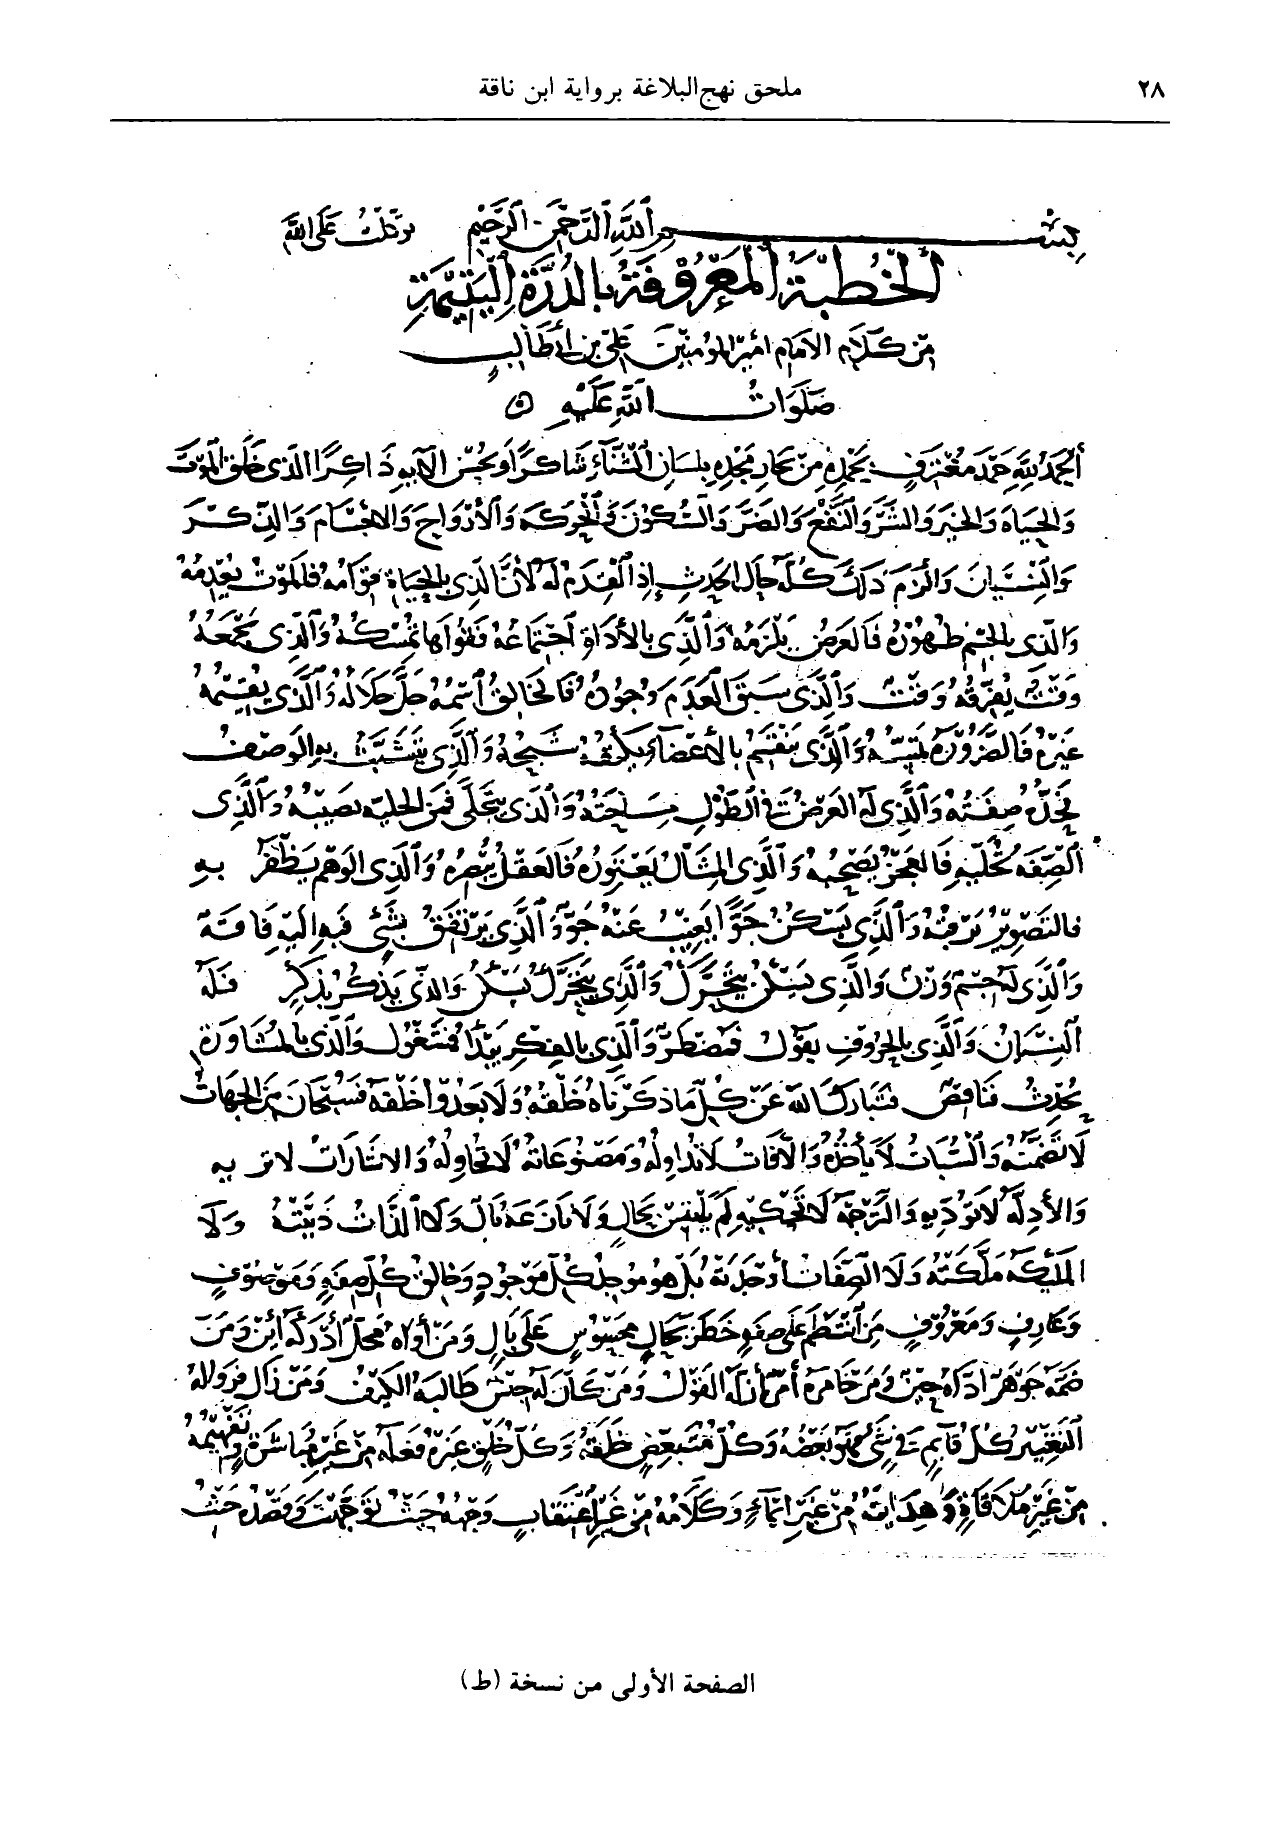 ٢٨
ملحق نهج‌البلاغة برواية ابن ناقة
بسم الله الرحمن الرحيم توكلت على الله
الخطبة المعروفة بالدرة اليتيمة
من كلام الامام امير المؤمنين علي بن أبي طالب
صلوات الله عليه
الحمد لله حمد معترف بحمده من بحار مجده بلسان الثناء شاكرا وبحسن آلائه ذاكرا الذي خلق الموت
والحياة والخير والشر والنفع والضر والسكون والحركة والأرواح والاجسام والذكر
والنسيان وألزم ذلك كله حال الحدث إذ القدم له لأن الذي بالحياة قوامه فالموت يعدمه
والذي بالجسم ظهوره فالعرض يلزمه والذي بالأداة اجتماعه فقواها تمسكه والذي يجمعه
وقت يفرقه وقت والذي سبق العدم وجوده فالخالق اسمه جل جلاله والذي يقيمه
غيره فالضرورة تمسه والذي ينقسم بالأعضاء شبحه والذي يتشبث به الوصف
صفته والذي له العرض في الطول مساحته والذي يتحلى فمن الحلية نصيبه والذي
الصفة تحليه فالعجز يصحبه والذي المثال يعتوره فالعقل يبصره والذي الوهم يظفر به
فالتصوير يرقبه والذي يسكن جوا يغيب عنه جو والذي يرتفق بشئ فبه إليه فاقة
والذي له جسم وزن والذي يسكن يتحرك والذي يتحرك يسكن والذي يذكر بذكر فله
النسيان والذي بالحروف يقول فمضطر والذي بالفكر يبتدئ فمشغول والذي بالمشاورة
يحدث فناقص فتبارك الله عن كل ما ذكرناه خلقه ولا يعدوا خلقه فسبحان من الجهات
لا تضمنه والسنات لا يأخذه والآفات لا تداوله ومصنوعاته لا تحاوله والاشارات لا تريه
والأدلة لا تؤديه والترجمة لا تحكيه لم يلتبس بحال ولا بان عنه بال ولا الذات ذيتته ولا
الملكة ملكته ولا الصفات أوجدته بل هو موجد كل موجود وخالق كل صفة وموصوف
وعارف ومعروف من انتظم على صفة خطر بحال محسوس على بال ومن أواه محل أدركه أين ومن
ضمه جوهر اداه حين ومن خامره أمر أزله القول ومن كان له جنس طالبه الكيف ومن زال فزواله
التغيير كل قايم في شئ فهو بعضه وكل متبعض خلقه وكل خلق غيره فعله من غير مباشرة وتفهيمه
من غير ملاقاة وهدايته من غير ايماء وكلامه من غير وجهه حيث توجهت وقصده حيث
الصفحة الأولى من نسخة (ط)